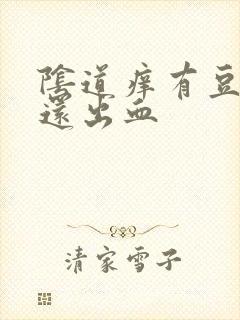 陰道痒有豆
還出血
清家雪子